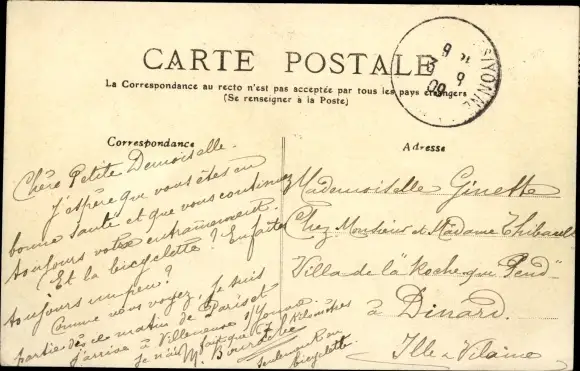 CARTE POSTALE
La Correspondance au recto n'est pas acceptée par tous les pays étrangers
(Se renseigner à la Poste)
Correspondance
Chère Petite Demoiselle.
J'espère que vous êtes en
bonne santé et que vous continuez
toujours votre entraînement.
Et la bicyclette? En faites
toujours un peu?
Comme vous voyez, je suis
partie dès ce matin de Paris et
j'arrive à Villeneuve s/ Yonne.
Je n'ai fait que Kilomètres
seulement en
bicyclette
M.
Adresse
Mademoiselle Ginette
Chez Monsieur et Madame
Villa de la "Roche qui Pend"
à Dinard.
Ille & Vilaine
YONNE